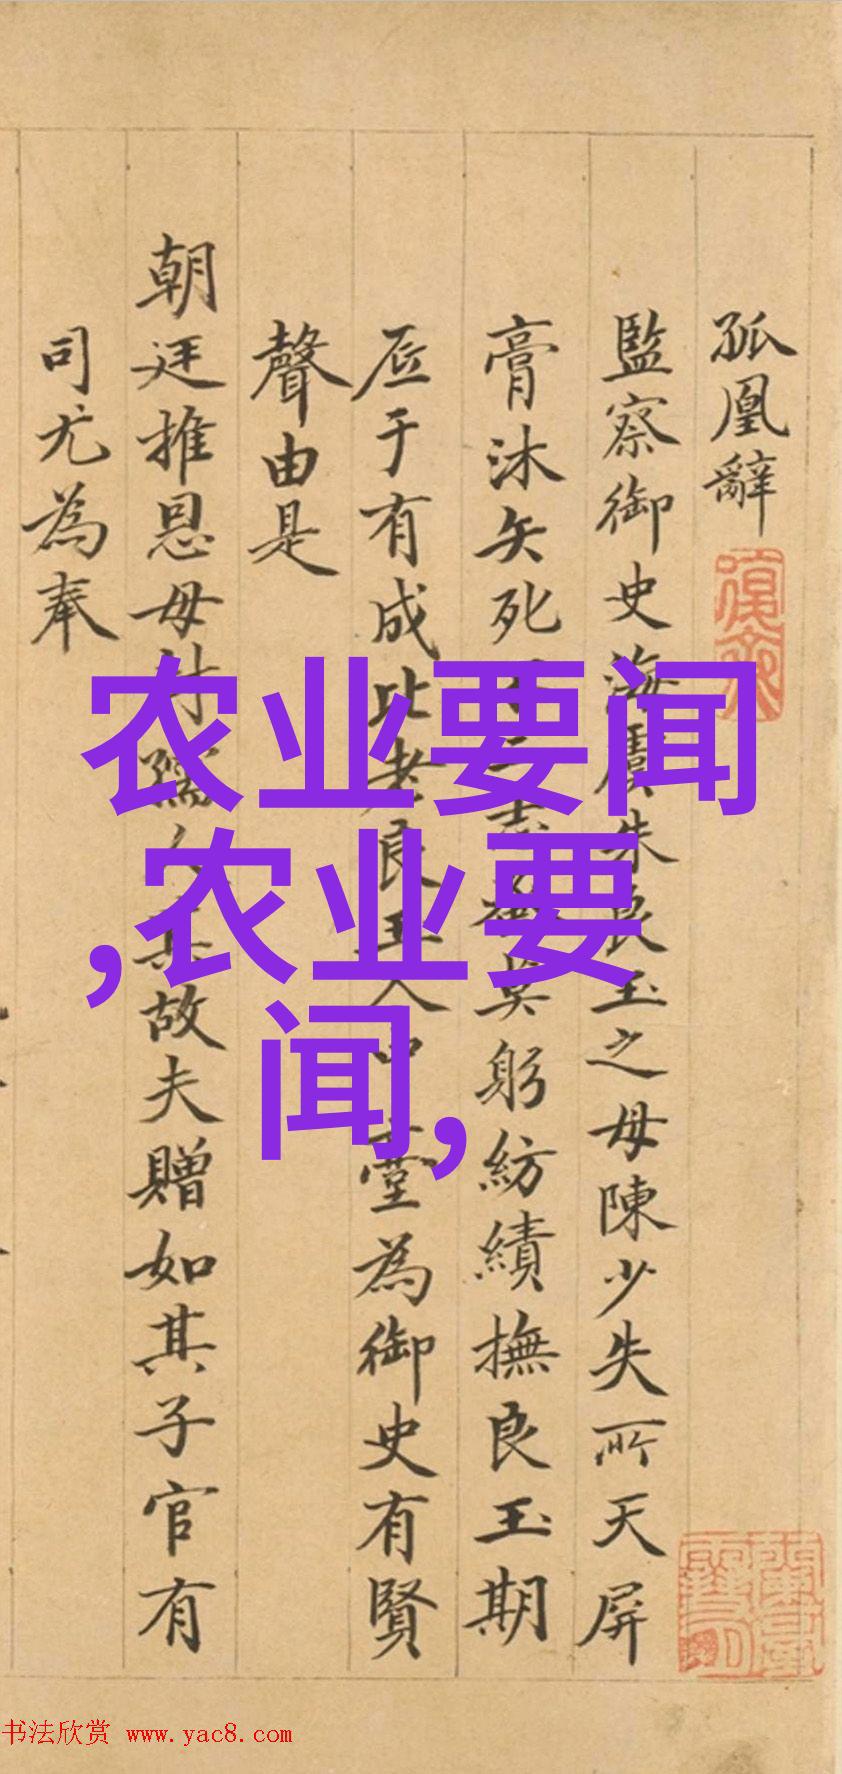 孤凰辭
監察御史海虞朱良玉之母陳少失所天屏
膏沐矢死
躬紡績撫良玉期
底于有成比老良玉入中臺為御史有賢
聲由是
朝廷推恩母封孺人其故夫贈如其子官有
司尤為奉
农业要闻
,农业要
闻,
书法欣赏 www.yac8.com